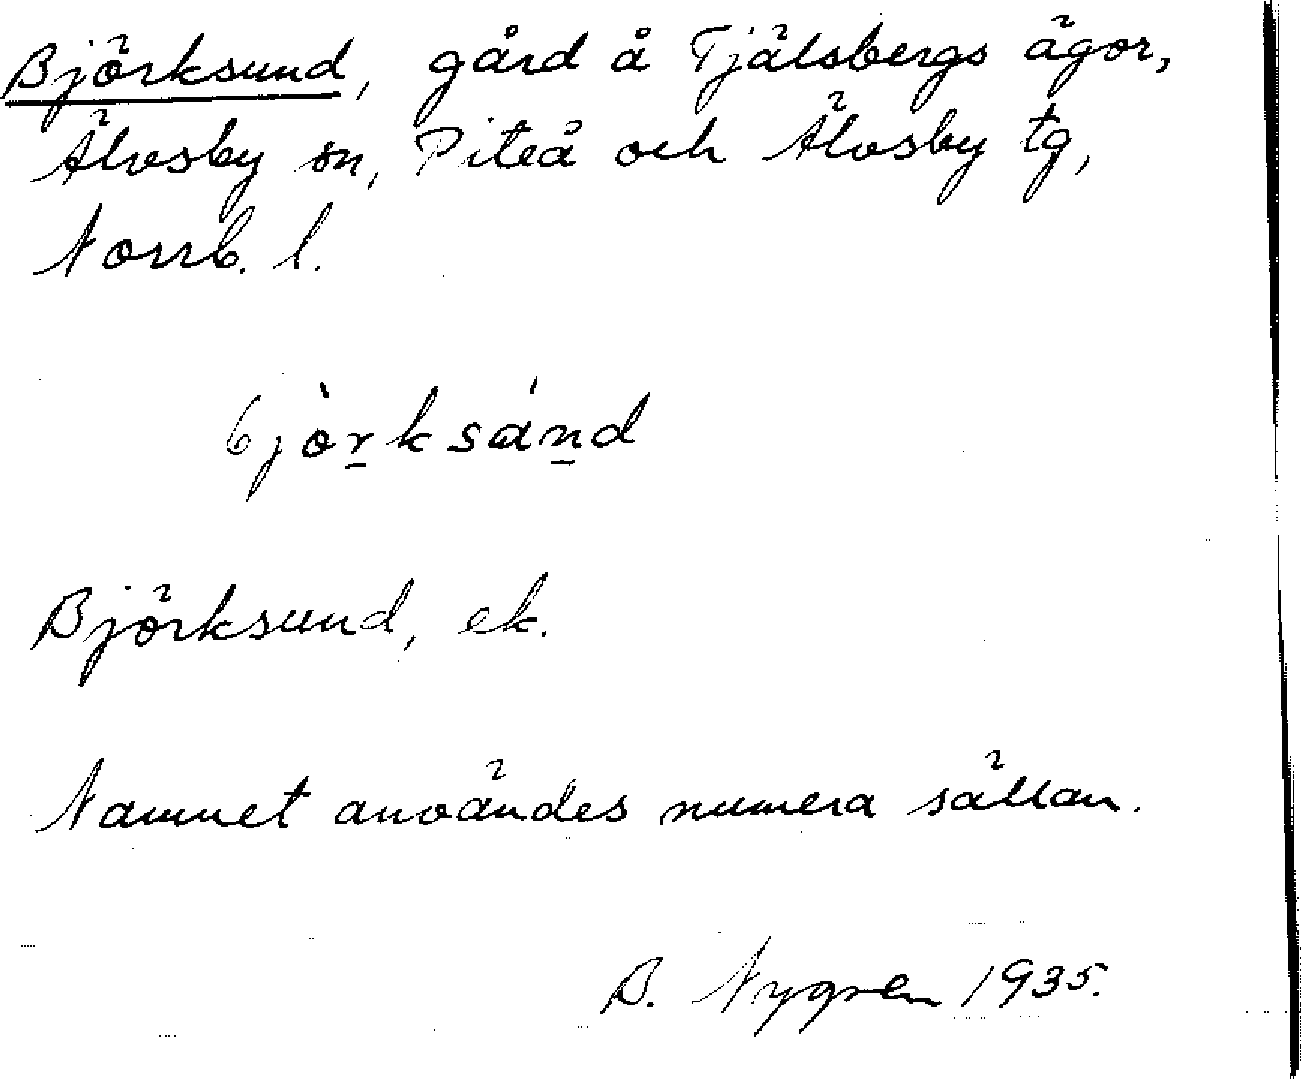 Björksund, gård å Tjälsbergs ägor,
Älvsby sn, Piteå och Älvsby tg,
Norrb. l.
bjò̱rksánd
Björksund, ek.
Namnet användes numera sällan.
B. Nygren 1935.